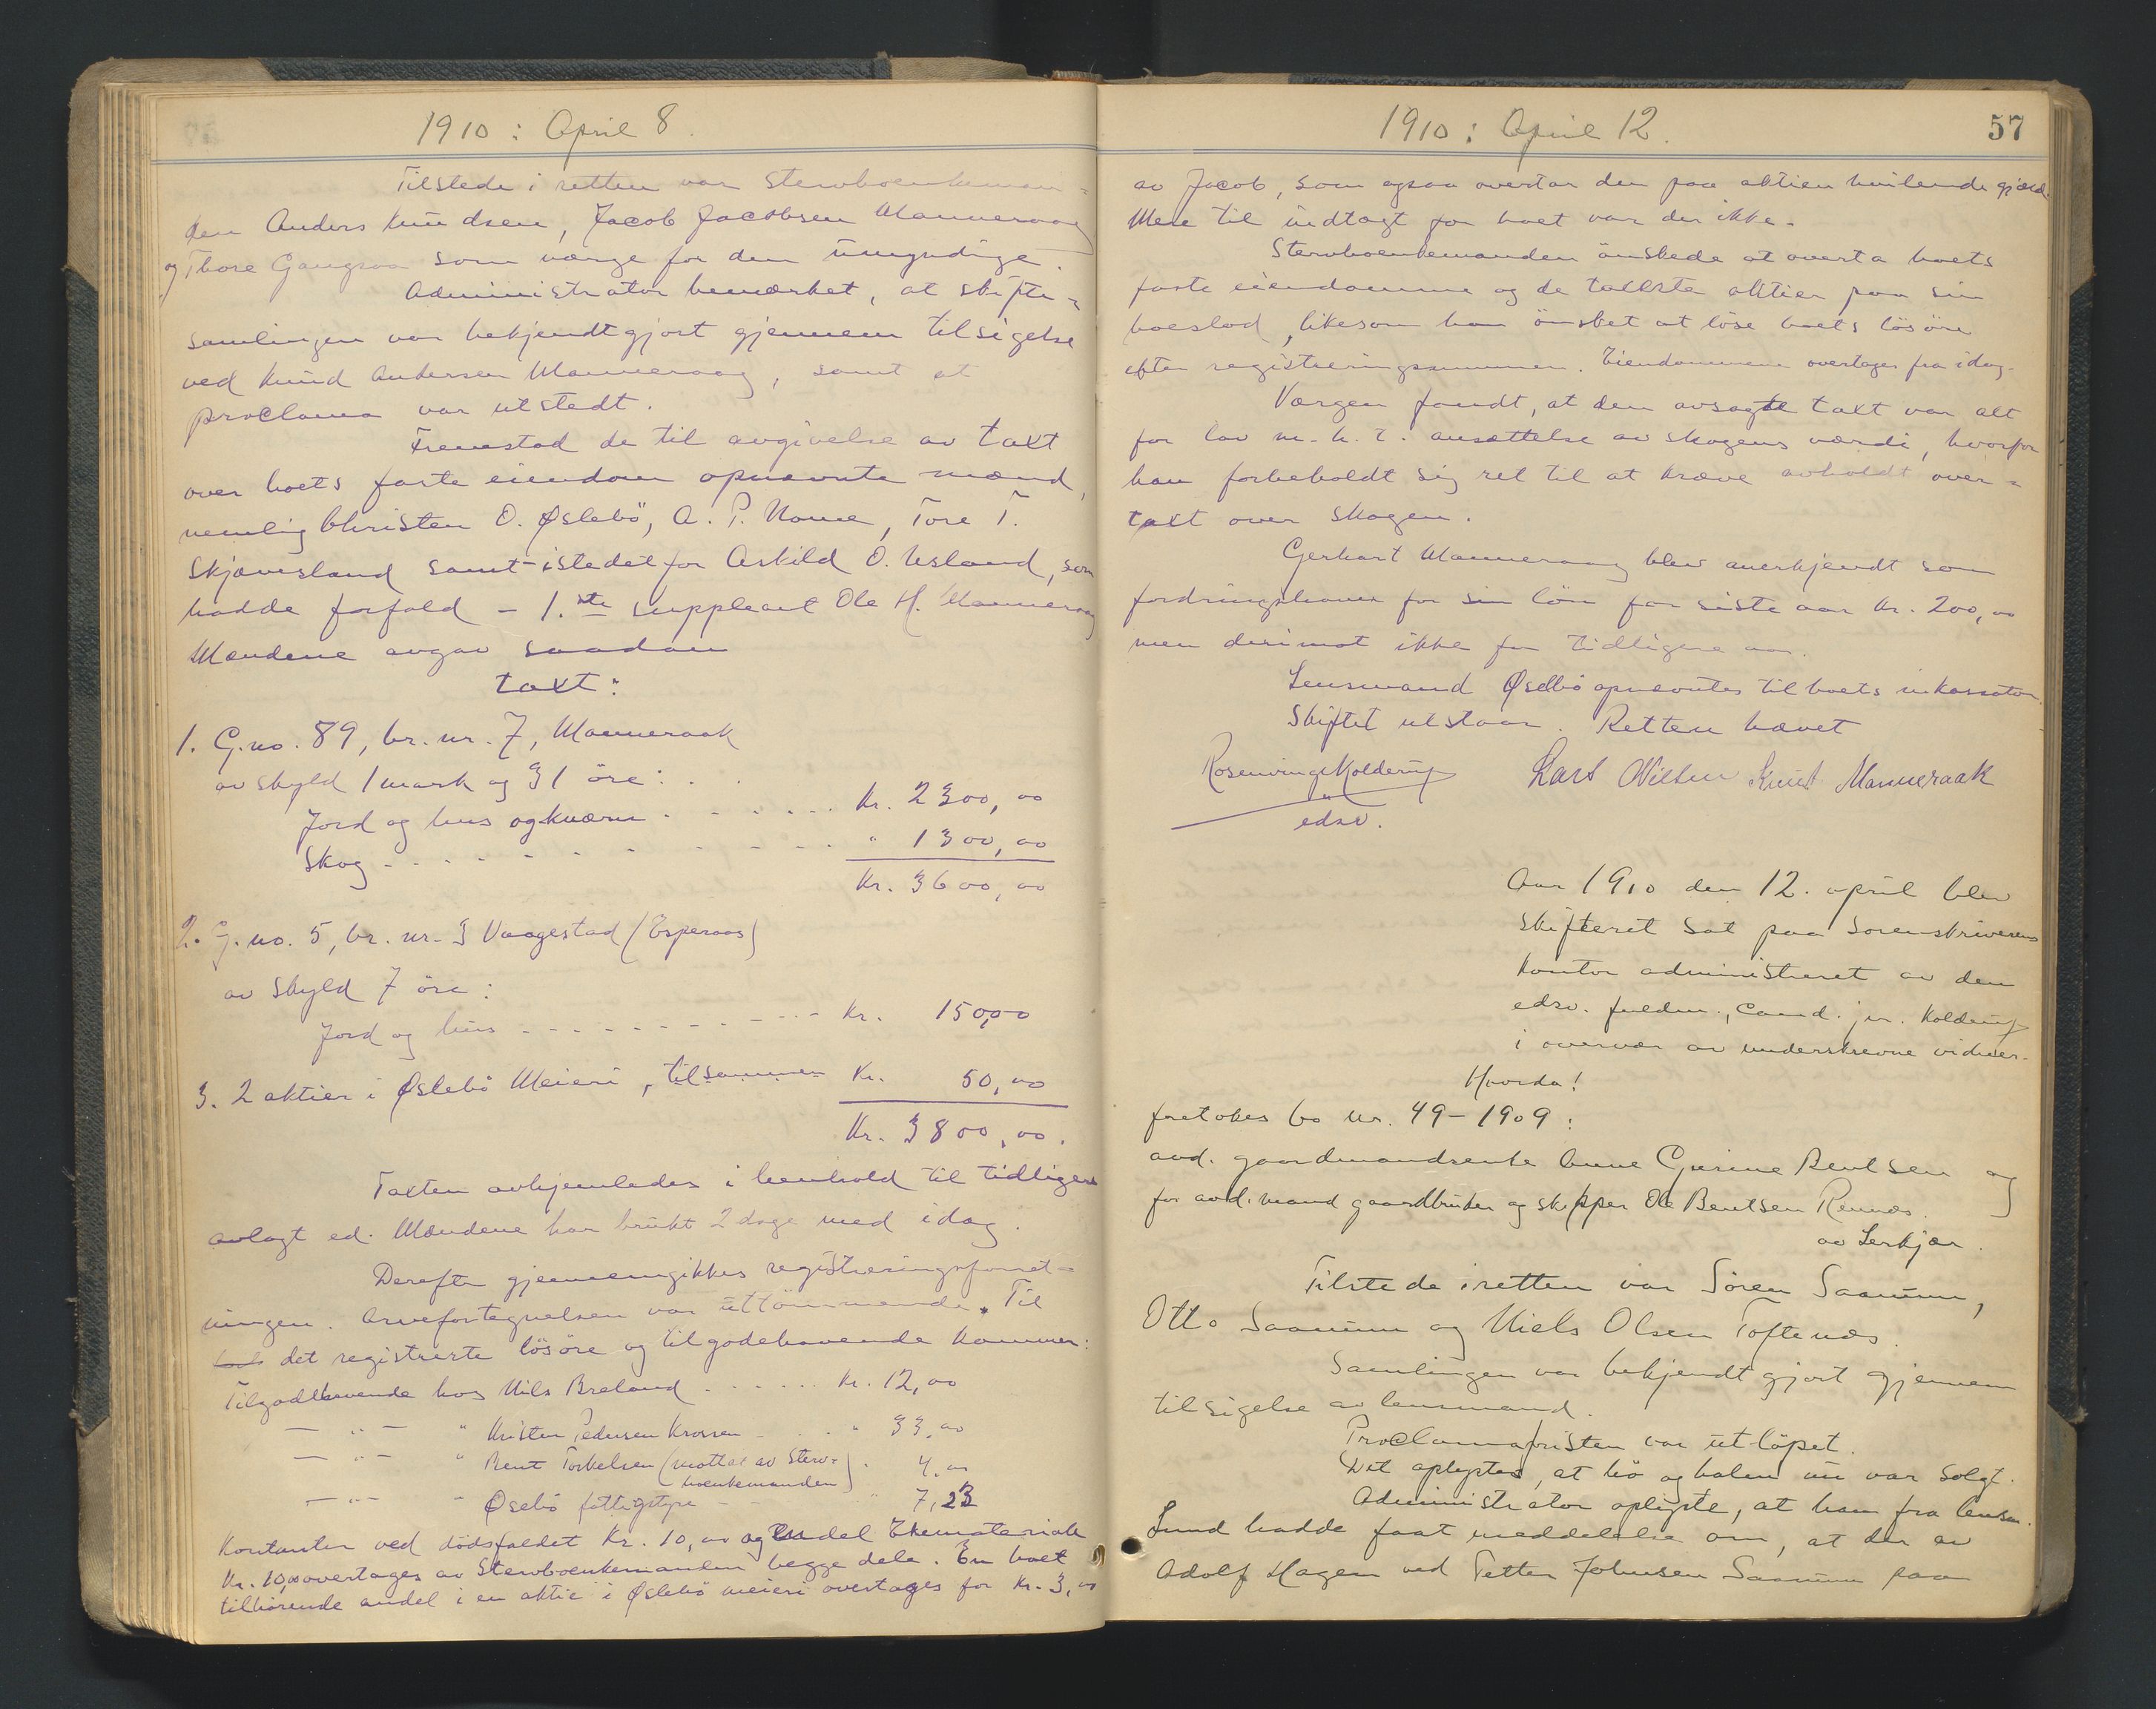 1910 : April 8.
Tilstede i retten var stervboenkeman-
den Anders Knudsen, Jacob Jacobsen Manneraag
og Thore Gangsaa som værge for den umyndige.
Administrator bemærket, at skifte-
samlingen var bekjendtgjort gjennem tilsigelse
ved Knud Andersen Manneraag, samt at
proclama var utstedt.
Fremstod de til avgivelse av taxt
over boets faste eiendom opnævnte mænd,
nemlig Christen O. Øslebö, A. P. Nome, Tore T.
Skjævesland samt - istedetfor Askild O. Usland, som
hadde forfald - 1.ste suppleant Ole H. Manneraag
Mændene avgav saadan
taxt:
1. G.no. 89, br. nr. 7, Manneraak
av skyld 1 mark og 31 öre: . .
Jord og hus og kværn . . . . . . Kr. 2300,00
Skog - - - - - - - - - " 1300,00
Kr. 3600,00
2. G. no. 5, br. nr. 3 Vaagestad (Esperaas)
av skyld 7 öre:
Jord og hus - - - - - - - - - - Kr. 150,00
3. 2 aktier i Øslebö Meieri, tilsammen Kr. 50,00
Kr. 3800,00.
Taxten avhjemledes i henhold til tidligere
avlagt ed. Mændene har brukt 2 dage med idag.
Derefter gjennemgikkes registreringsforret-
ningen. Arvefortegnelsen var uttömmende. Til
det registrerte lösöre og tilgodehavende kommer:
Tilgodehavende hos Nils Breland . . . . . . Kr. 12,00
— " — " Kristen Pedersen Krossen . . . " 33,00
— " — " Bent Torkelsen (mottat av sterv- boenkemanden) . 4.00
— " — " Øselö fattigstyre - - " 7,23
Kontanter ved dödsfaldet Kr. 10,00 og endel
Kr. 10,00 overtages av Stervboenkemanden begge dele. En boet
tilhörende andel i en aktie i Øslebö meieri overtages for Kr. 3,00
1910 : April 12.
57
av Jacob, som ogsaa overtar den paa aktien hvilende gjæld.
Mere til indtægt for boet var der ikke.
Stervboenkemanden önskede at overta boets
faste eiendomme og de taxerte aktier paa sin
boeslod, likesom han önsket at löse boets lösöre
efter registreringssummen. Eiendommene overtages fra idag.
Værgen fandt, at den avsagte taxt var alt
for lav m. h. t. ansættelse av skogens værdi, hvorfor
han forbeholdt sig ret til at kræve avholdt over-
taxt over skogen.
Gerhart Manneraag blev anerkjendt som
fordringshaver for sin lön for siste aar Kr. 200,00
men derimot ikke for tidligere aar.
Lensmand Øselbö opnævntes til boets inkassator.
Skiftet utstaar. Retten hævet
Rosenvinge Kolderup Lars Nilsen Knut Manneraak
edsv.
Aar 1910 den 12. april blev
skifteret sat paa Sorenskriverens
kontor administreret av den
edsv. fuldm., cand. jur. Kolderup
i overvær av underskrevne vidner.
Hvorda!
foretokes bo nr. 49-1909:
avd. gaardmandsenke Gurine Bentsen og
for avd. mand gaardbruker og skipper Ole Bentsen Rennæs.
av Lerkjær.
Tilstede i retten var Sören Saanum,
Otto Saanum og Niels Olsen Toftenæs.
Samlingen var bekjendtgjort gjennem
tilsigelse av lensmand.
Proclamafristen var utlöpet.
Det oplystes, at hö og halm nu var solgt.
Administrator oplyste, at han fra lensm.
Lund hadde faat meddelelse om, at der av
Adolf Hagen ved Petter Johnsen Saanum paa